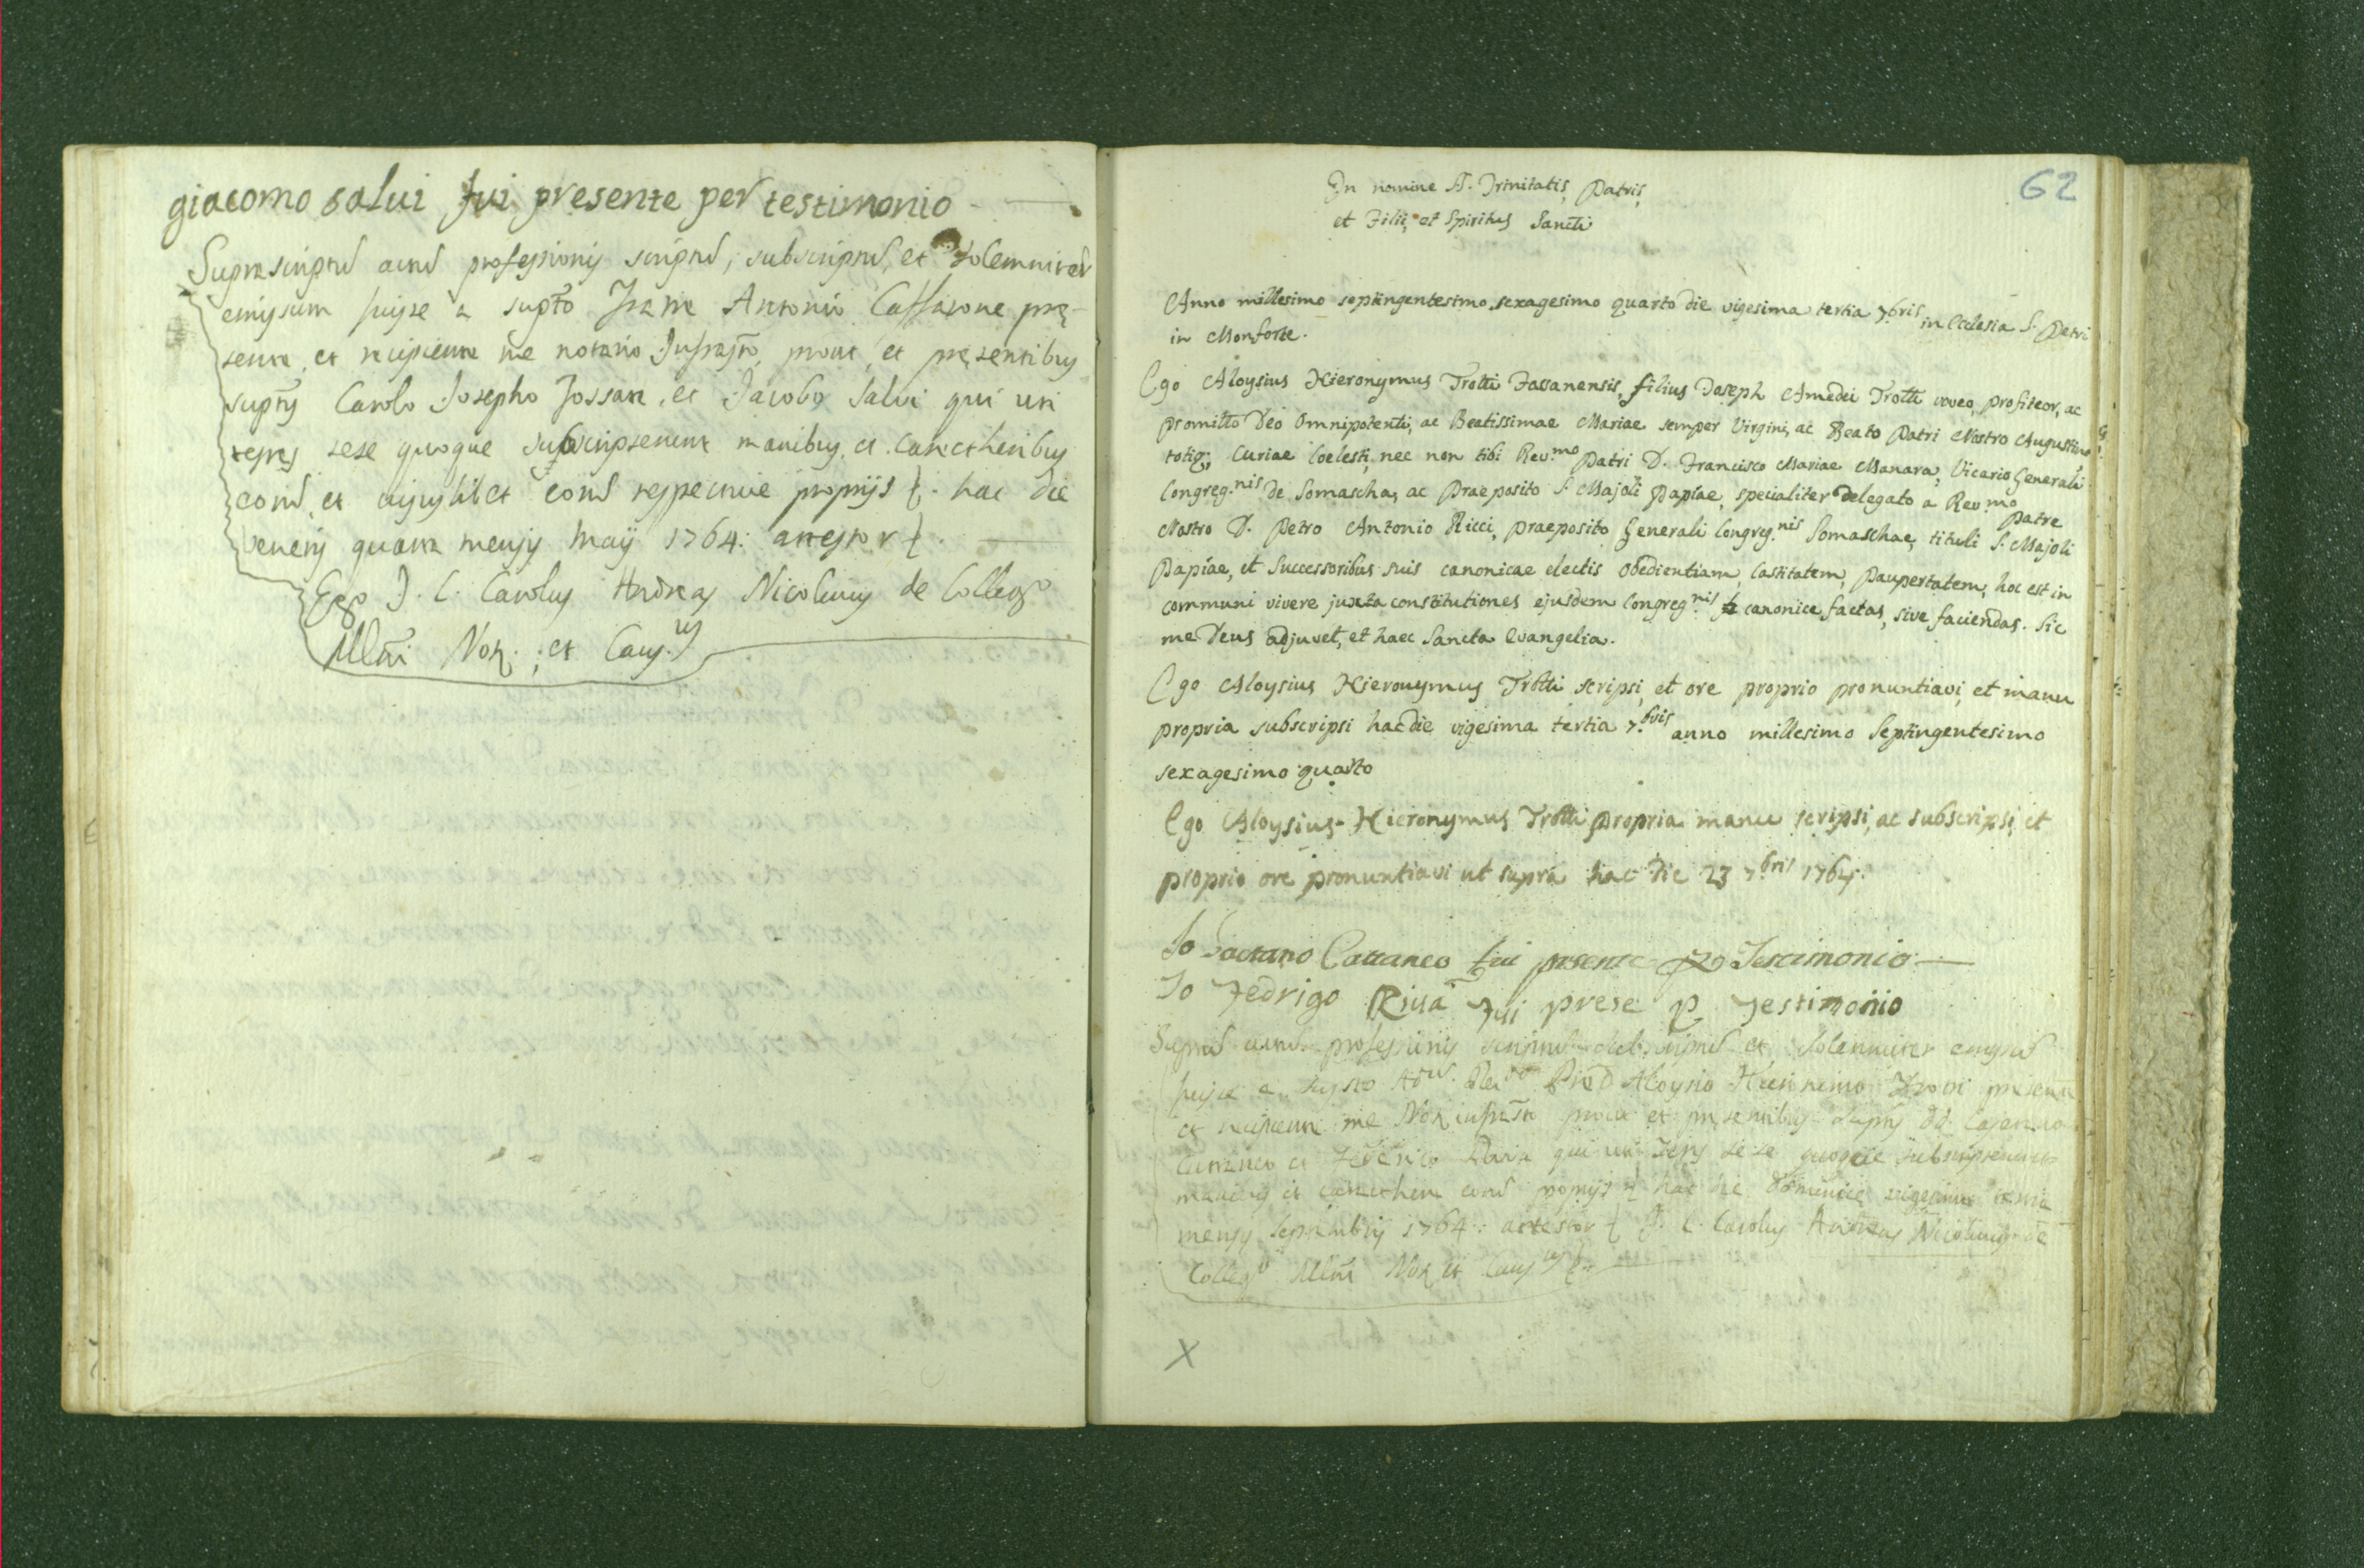 giacomo salui fui presente per testimonio
Suprascriptũ actũ professionis scriptũ, subscriptũ, et solemniter
emissum fuisse a supto Fratre Antonio Caffarone prę-
sente, et recipiente me notario Infrasto, prout, et pręsentibus
suptis Carolo Josepho Fossati, et Jacobo Salvi qui uti
testes sese quoque subscripserunt manibus, et carectheribus
eorũ, et cujuslibet eorũ respective proprijs hac die
veneris quarta mensis Maij 1764: attestor
Ego J. C. Carolus Andreas Nicolinus de Collego
Mlni Not. et Caus.us
62
In nomine SS. Trinitatis, Patris,
et Filii, et Spiritus Sancti
Anno millesimo septingentesimo sexagesimo quarto die vigesima tertia 7bris in Ecclesia S. Petri
in Monforte.
Ego Aloysius Hieronymus Trotti Fassanensis, filius Joseph Amedei Trotti voveo, profiteor, ac
promitto Deo Omnipotenti, ac Beatissimae Mariae semper Virgini, ac Beato Patri Nostro Augustino
totiq; Curiae Coelesti, nec non tibi Rev.mo Patri D. Francisco Mariae Manara, Vicario Generali
Congreg.nis de Somascha, ac Praeposito S. Majoli Papiae, specialiter delegato a Rev.mo Patre
Nostro D. Petro Antonio Ricci, praeposito Generali Congreg.nis Somaschae, tituli S. Majoli
Papiae, et Successoribus suis canonicae electis obedientiam, Castitatem, Paupertatem, hoc est in
communi vivere juxta constitutiones ejusdem Congreg.nis canonice factas, sive faciendas. Sic
me Deus adjuvet, et haec Sancta Evangelia.
Ego Aloysius Hieronymus Trotti scripsi, et ore proprio pronuntiavi, et manu
propria subscripsi hac die vigesima tertia 7.bris anno millesimo Septingentesimo
sexagesimo quarto
Ego Aloysius Hieronymus Trotti propria manu scripsi, ac subscripsi, et
proprio ore pronuntiavi ut supra hac die 23 7.bris 1764.
Io Gaetano Cattaneo fui presente p Testimonio
Io Fedrigo Riva Fui prese p Testimonio
Suptũ actũ professionis scriptũ subscriptũ et solemniter emissũ
fuisse a supsto Aloysio Hieronimo Trotti presente
et recipiente me Not. infrasto prout et presentibus suptis DD. Cajetano
Cattaneo et Federico Riva qui uti testes sese quoque subscripserunt
manibus et carecthere eorũ proprijs hac die dominice vigesima tertia
mensis Septembris 1764: attestor J. C. Carolus Andreas Nicolinus de
Collego Mlni Not. et Caus.us
X